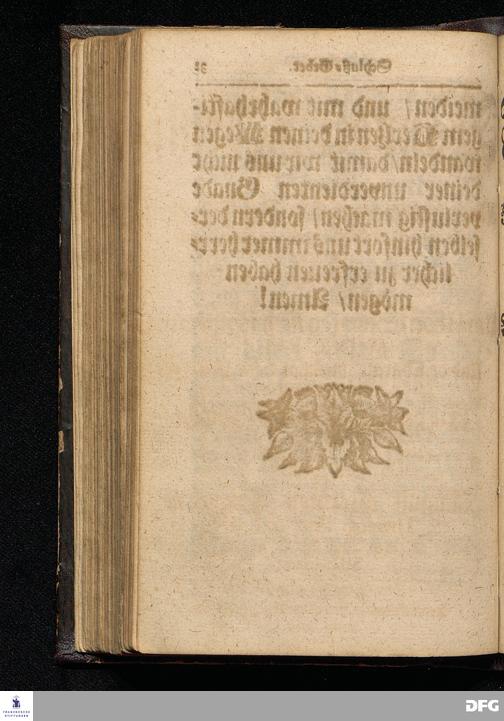 Schluß-Gebet. 
meiden / und mit wahrhaffti-
gem Hertzen in deinen Wegen
wandeln / damit wir uns nicht
deiner unverdienten Gnade
verlustig machen / sondern der-
selben hinfort und immer herr-
licher zu erfreuen haben
mögen / Amen!
FRANCKESCHE
STIFTUNGEN
DFG